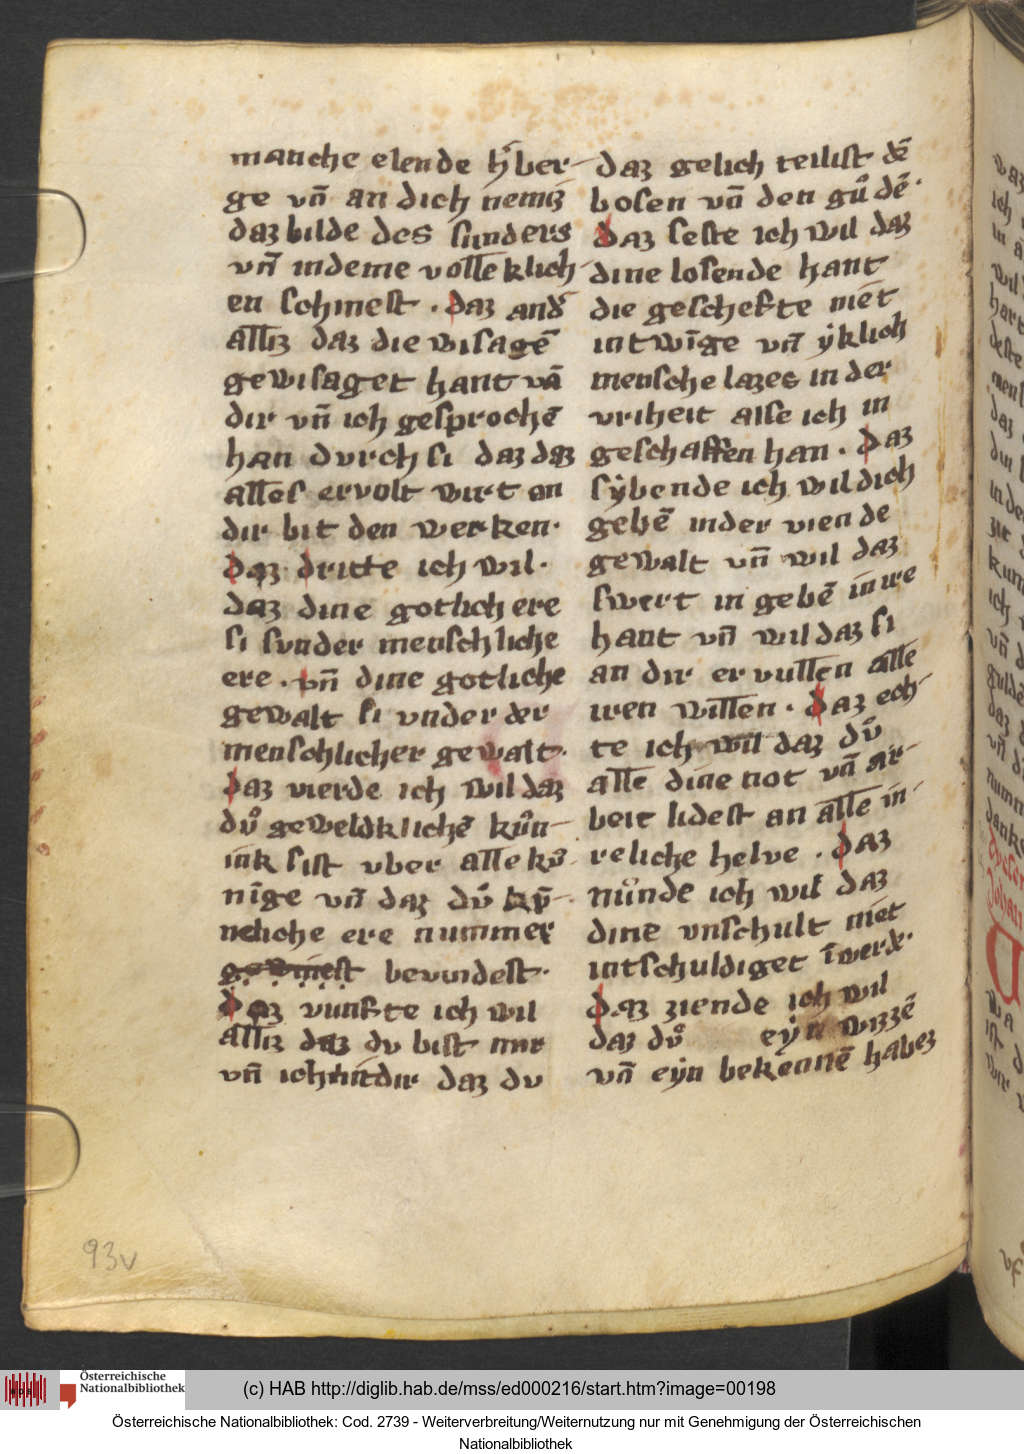 manche elende h͛ber-
ge vn̄ an dich nemiz
daz bilde des sunders
vn̄ indeme volleklich-
en schinest . daz and͛
alliz daz die wisagē
gewisaget hant vā
dir vn̄ ich gesprochē
han dvrch si daz daz
alles ervolt wirt an
dir bit den werken·
daz dritte ich wil·
daz dine gotlich ere
si svnder menschliche
ere . vn̄ dine gotliche
gewalt si vnder der
menschlicher gewalt·
daz vierde ich wil daz
dvͦ geweldklichē kvͦn-
ink sist vber alle kvͦ-
nīge vn̄ daz dvͦ kv̄-
neliche ere nummer
gewinest bevindest·
daz vunfte ich wil
alliz daz dv bist mir
vn̄ ich mit dir daz dv
daz gelich teilist dē
bosen vn̄ den gvͦ dē·
daz seste ich wil daz
dine losende hant
die geschefte niet
intwīge vn̄ ẏklich
mensche lazes in der
vriheit alse ich in
geschaffen han . daz
sẏbende ich wil dich
gebē inder viende
gewalt vn̄ wil daz
swert in gebē in ire
hant vn̄ wil daz si
an dir ervullen alle
iren willen . daz ech-
te ich wil daz dvͦ
alle dine not vn̄ ar-
beit lidest an alle in-
reliche helve . daz
nuͦnde ich wil daz
dine vnschult niet
intschuldiget īwerde·
daz ziende ich wil
daz dvͦ eẏn wizzē
vn̄ eẏn bekennē habez
93v
Österreichische
Nationalbibliothek
(c) HAB http://diglib.hab.de/mss/ed000216/start.htm?image=00198
Österreichische Nationalbibliothek: Cod. 2739 - Weiterverbreitung/Weiternutzung nur mit Genehmigung der Österreichischen
Nationalbibliothek